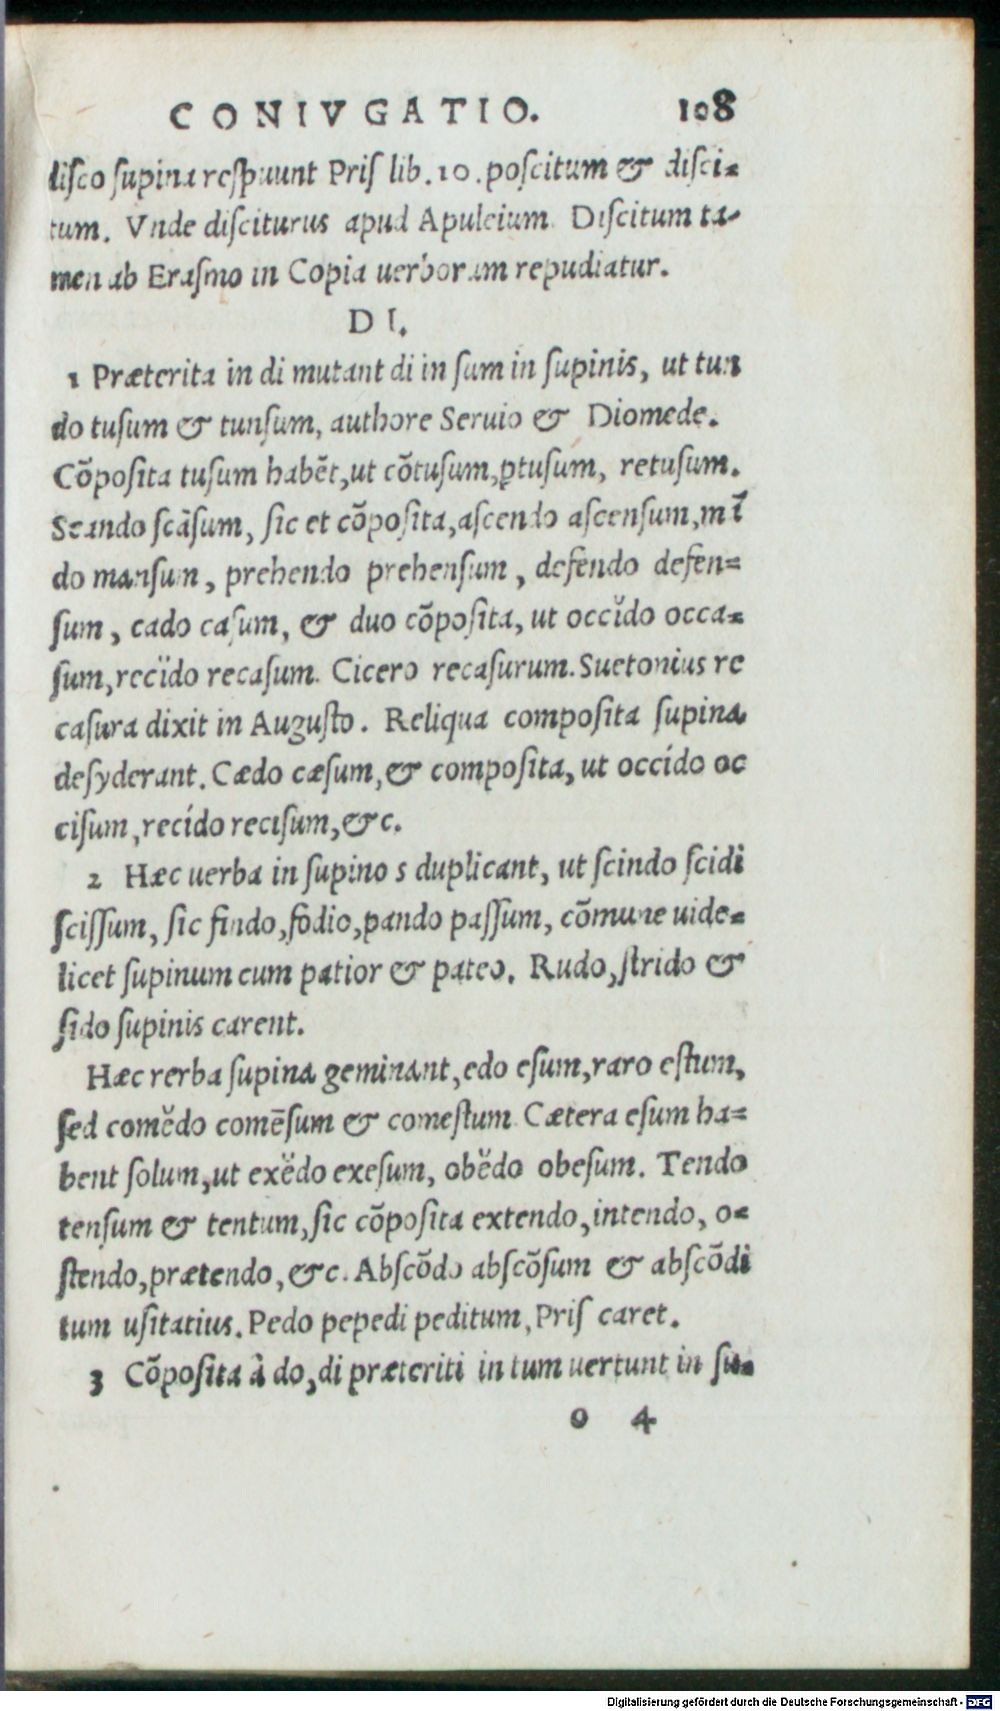 CONIVGATIO. 108
disco supina respuunt Pris lib. 10. poscitum & disci-
tum. Vnde disciturus apud Apuleium. Discitum ta-
men ab Erasmo in Copia uerborum repudiatur.
DI.
1 Præterita in di mutant di in sum in supinis, ut tun
do tusum & tunsum, authore Seruio & Diomede.
Cōposita tusum habēt, ut cōtusum, ꝑtusum, retusum.
Scando scāsum, sic et cōposita, ascendo ascensum, mā
do mansum, prehendo prehensum, defendo defen-
sum, cado casum, & duo cōposita, ut occĭdo occa-
sum, recĭdo recasum. Cicero recasurum. Suetonius re
casura dixit in Augusto. Reliqua composita supina
desyderant. Cædo cæsum, & composita, ut occído oc
cisum, recído recisum, &c.
2 Hæc uerba in supino s duplicant, ut scindo scidi
scissum, sic findo, fodio, pando passum, cōmune uide-
licet supinum cum patior & pateo. Rudo, strido &
sido supinis carent.
Hæc rerba supina geminant, edo esum, raro estum,
sed comĕdo comēsum & comestum. Cætera esum ha-
bent solum, ut exĕdo exesum, obĕdo obesum. Tendo
tensum & tentum, sic cōposita extendo, intendo, o-
stendo, prætendo, &c. Abscōdo abscōsum & abscōdi
tum usitatius. Pedo pepedi peditum, Pris caret.
3 Cōposita à do, di præteriti in tum uertunt in su-
o 4
Digitalisierung gefördert durch die Deutsche Forschungsgemeinschaft - DFG